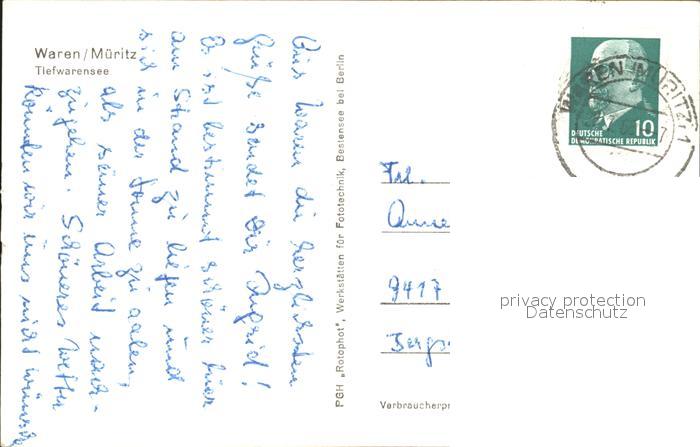 Waren/Müritz
Tiefwarensee
Aus Waren die herzlichsten
Grüße sendet Dir Ingrid!
Es ist bestimmt schöner hier
am Strand zu liegen und
sich in der Sonne zu aalen,
als seiner Arbeit nach-
zugehen. Schöneres Wetter
könnten wir uns nicht wünschen
PGH „Rotophot", Werkstätten für Fototechnik, Bestensee bei Berlin
WAREN (MÜRITZ) 1
10
DEUTSCHE
DEMOKRATISCHE REPUBLIK
Frl.
Anne
9417
privacy protection
Datenschutz
Verbraucherpr